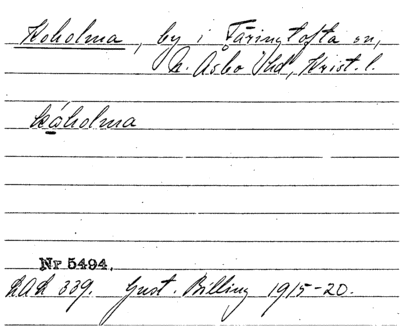 Koholma, by i Färingtofta sn,
N. Åsbo Hd, Krist. l.
kåholma
Nr 5494.
LAL 339. Gust. Billing 1915-20.